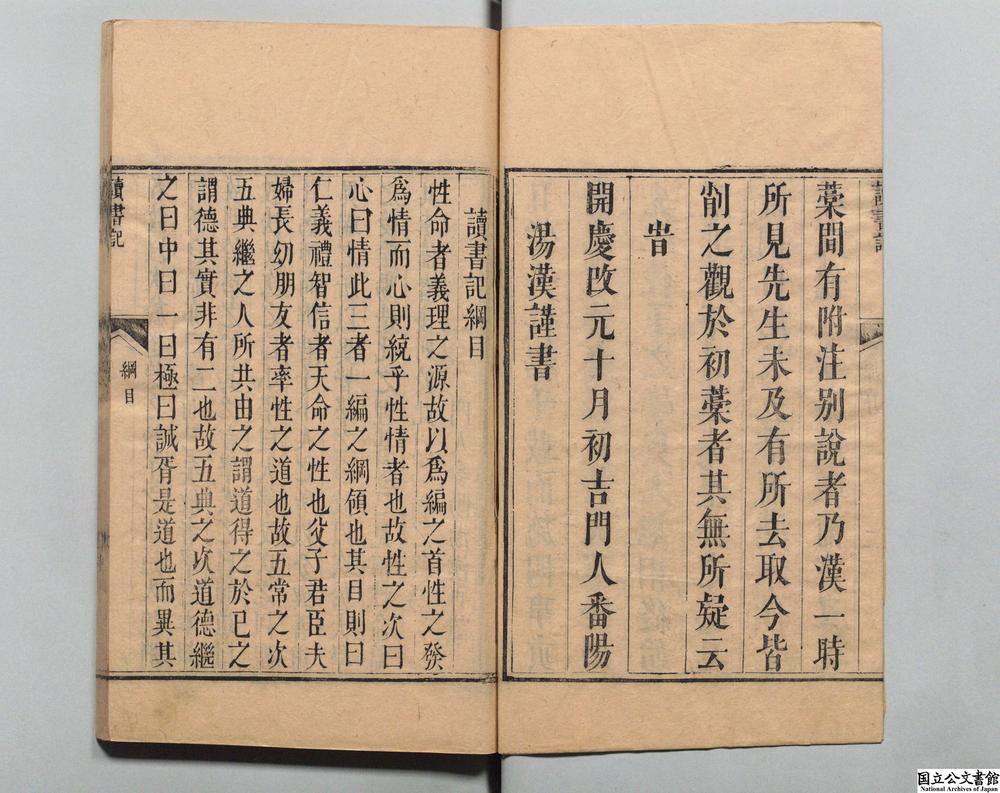 藁間有附注别說者乃漢一時
所見先生未及有所去取今皆
削之觀於初藁者其無所疑云
旹
開慶改元十月初吉門人番陽
湯漢謹書
讀書記綱目
性命者義理之源故以爲編之首性之發
爲情而心則統乎性情者也故性之次曰
心曰情此三者一編之綱領也其目則曰
仁義禮智信者天命之性也父子君臣夫
婦長幼朋友者率性之道也故五常之次
五典繼之人所共由之謂道得之於己之
謂德其實非有二也故五典之次道德繼
之曰中曰一曰極曰誠胥是道也而異其
讀書記
綱目
国立公文書館
National Archives of Japan